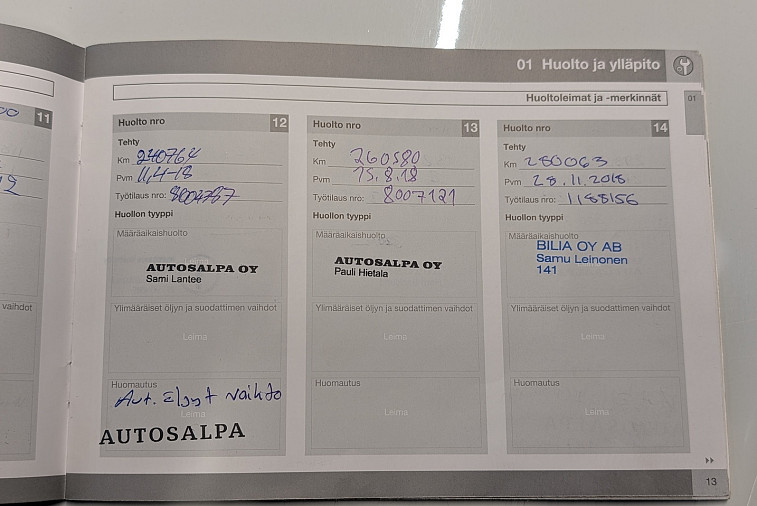 01 Huolto ja ylläpito
Huoltoleimat ja -merkinnät
01
11
Huolto nro 12
Tehty
Km 240764
Pvm 11,4-18
Työtilaus nro:
Huollon tyyppi
Määräaikaishuolto
AUTOSALPA OY
Sami Lantee
Ylimääräiset öljyn ja suodattimen vaihdot
Leima
Huomautus
Aut. Elyyt vaihto
Leima
AUTOSALPA
Huolto nro 13
Tehty
Km 260580
Pvm 15.8.18
Työtilaus nro: 8007121
Huollon tyyppi
Määräaikaishuolto
AUTOSALPA OY
Pauli Hietala
Ylimääräiset öljyn ja suodattimen vaihdot
Leima
Huomautus
Leima
Huolto nro 14
Tehty
Km 280063
Pvm 28.11.2018
Työtilaus nro: 1188156
Huollon tyyppi
Määräaikaishuolto
BILIA OY AB
Samu Leinonen
141
Ylimääräiset öljyn ja suodattimen vaihdot
Leima
Huomautus
Leima
vaihdot
13